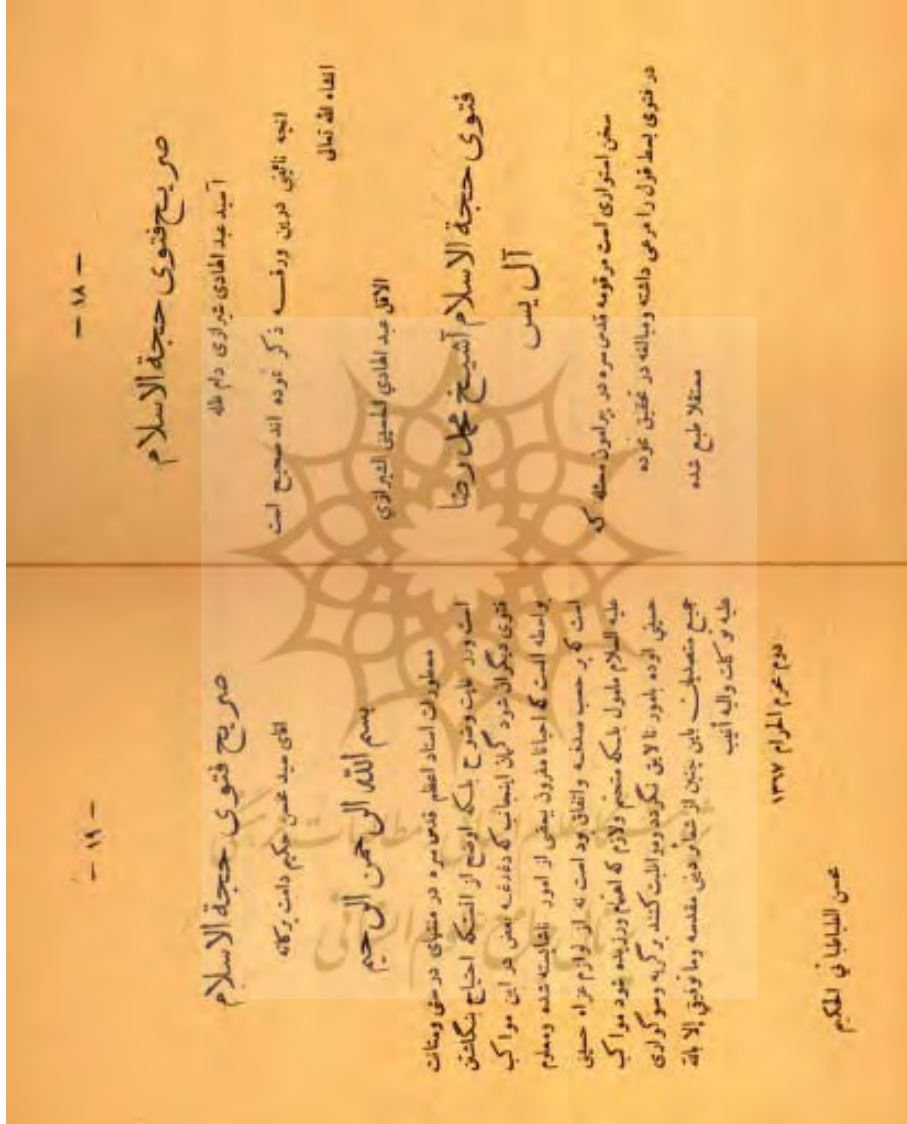 – ١٨ –
صریح فتوی حجة الاسلام
آسید عبد الهادی شیرازی دام ظله
انچه نائینی درین ورقه ذکر نموده اند صحیح است
انشاء الله تعالی
الاقل عبد الهادي الحسینی الشیرازي
فتوی حجة الاسلام آشیخ محمد رضا
آل یس
سخن استواری است مرقومه قدس سره در پیرامون مسئله که
در فتوی بسط قول را مرعی داشته ومبالغه در تحقیق نموده
مستقلا طبع شده
– ١٩ –
صریح فتوی حجة الاسلام
اقای سید محسن حکیم دامت برکاته
بسم الله الرحمن الرحیم
مسطورات استاد اعظم قدس سره در منتهای درستی ومتانت
است ودر غایت وضوح بلکه اوضح از انستکه احتیاج بنگاشتن
فتوی دیگران شود گمان اینجانب که دغدغه بعض در این مواکب
بواسطه انست که احیانا مقرون ببعض از امور ناشایسته شده ومعلوم
است که بر حسب صدفه واتفاق بوده است نه از لوازم عزاء حسینی
علیه السلام بلکه متحتم ولازم که اهتمام ورزیده شود مواکب
حسینی الوده بامور نالایق نگردد ومواظبت کنند برگریه وسوگواری
جمیع متصدیان باین چنین از شعائر دینی مقدسه وما توفیقي إلا بالله
علیه توکلت والیه أنیب
دوم محرم الحرام ١٣٦٧
محسن الطباطبائي الحکیم